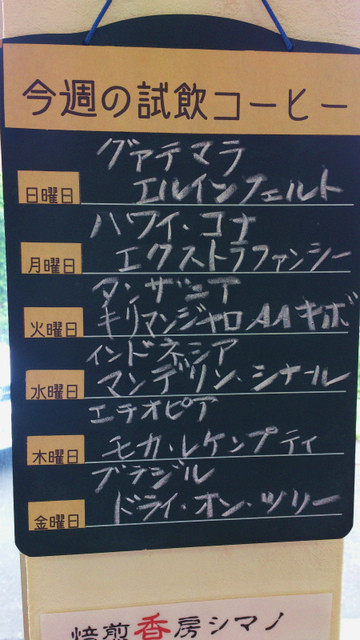 今週の試飲コーヒー
グァテマラ
日曜日 エルインフェルト
ハワイ・コナ
月曜日 エクストラファンシー
タンザニア
火曜日 キリマンジャロAAキボ
インドネシア
水曜日 マンデリン・シナール
エチオピア
木曜日 モカ・レケンプティ
ブラジル
金曜日 ドライ・オン・ツリー
焙煎香房シマノ